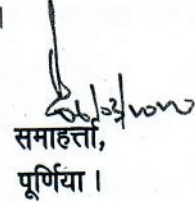 ।
समाहर्त्ता,
पूर्णिया ।